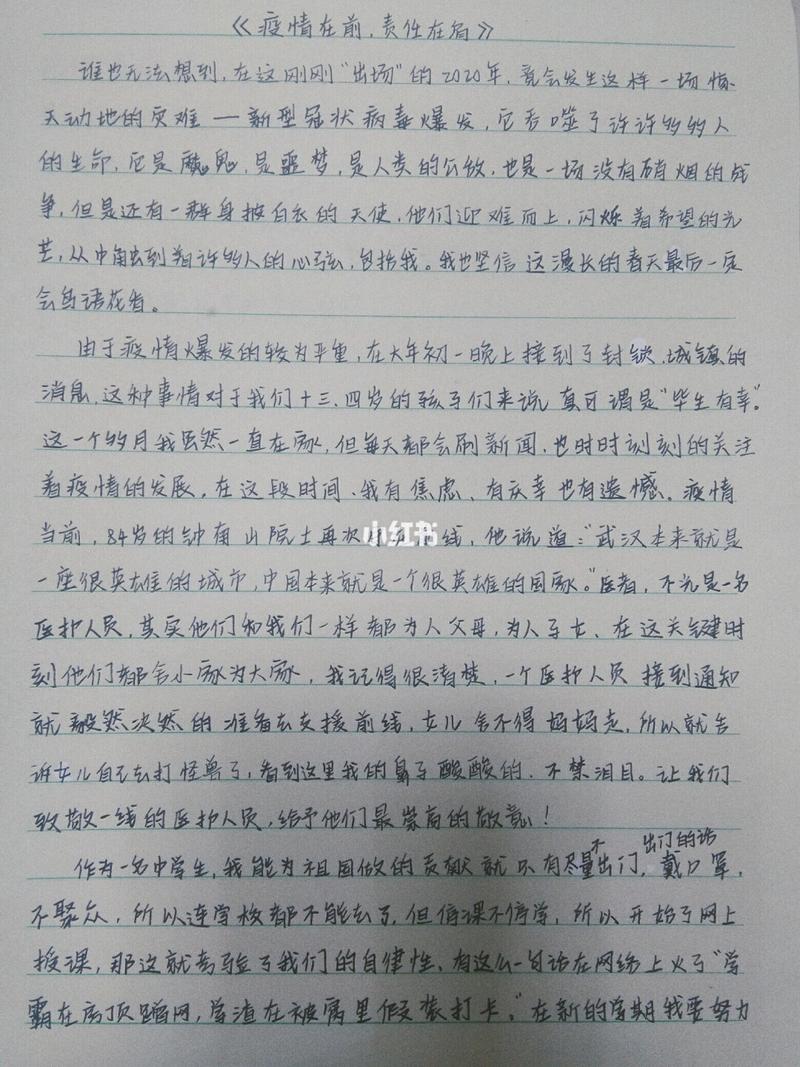 《疫情在前,责任在肩》
谁也无法想到,在这刚刚"出场"的2020年,竟会发生这样一场惊
天动地的灾难——新型冠状病毒爆发,它吞噬了许许多多人
的生命,它是魔鬼,是噩梦,是人类的公敌,也是一场没有硝烟的战
争,但是还有一群身披白衣的天使,他们迎难而上,闪烁着希望的光
芒,从中触到着许多人的心弦,包括我。我也坚信这漫长的春天最后一定
会鸟语花香。
由于疫情爆发的较为严重,在大年初一晚上接到了封锁城镇的
消息,这种事情对于我们十三、四岁的孩子们来说真可谓是"毕生有幸"。
这一个多月我虽然一直在家,但每天都会刷新闻,也时时刻刻的关注
着疫情的发展,在这段时间、我有焦虑、有庆幸也有遗憾。疫情
当前,84岁的钟南山院士再次线,他说道:"武汉本来就是
小红书
一座很英雄的城市,中国本来就是一个很英雄的国家。"医者,不光是一名
医护人员,其实他们和我们一样都为人父母,为人子女、在这关键时
刻他们都舍小家为大家,我记得很清楚,一个医护人员接到通知
就毅然决然的准备去支援前线,女儿舍不得妈妈走,所以就告
诉女儿自己去打怪兽了,看到这里我的鼻子酸酸的、不禁泪目。让我们
致敬一线的医护人员,给予他们最崇高的敬意!
作为一名中学生,我能为祖国做的贡献就只有尽量不出门,出门的话戴口罩,
不聚众,所以连学校都不能去了,但停课不停学,所以开始了网上
授课,那这就考验了我们的自律性、有这么一句话在网络上火了"学
霸在房顶蹭网,学渣在被窝里假装打卡。"在新的学期我要努力